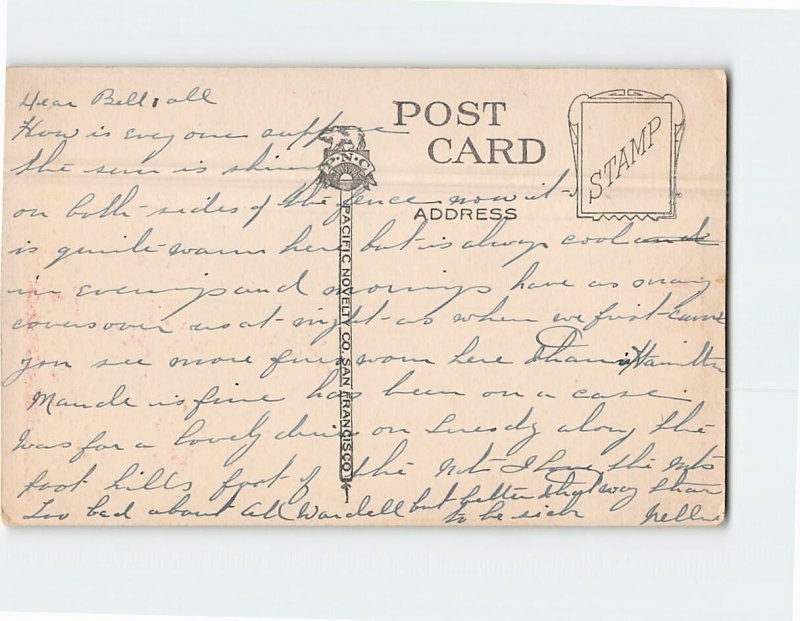 POST
CARD
STAMP
P.N.C.
ADDRESS
PACIFIC NOVELTY CO. SAN FRANCISCO
Dear Bell & all
How is every one suppose
the sun is shin
on both sides of the fence now it
is quite warm here but is always cool and
in evenings and mornings have as many
covers over us at night as when we first came
you see more furs worn here than in Hamilton
Maude is fine has been on a case
Was for a lovely drive on Tuesdy along the
foot hills foot of the Mts I love the Mts
Too bad about Wardell but better that way than
to be sick Nellie